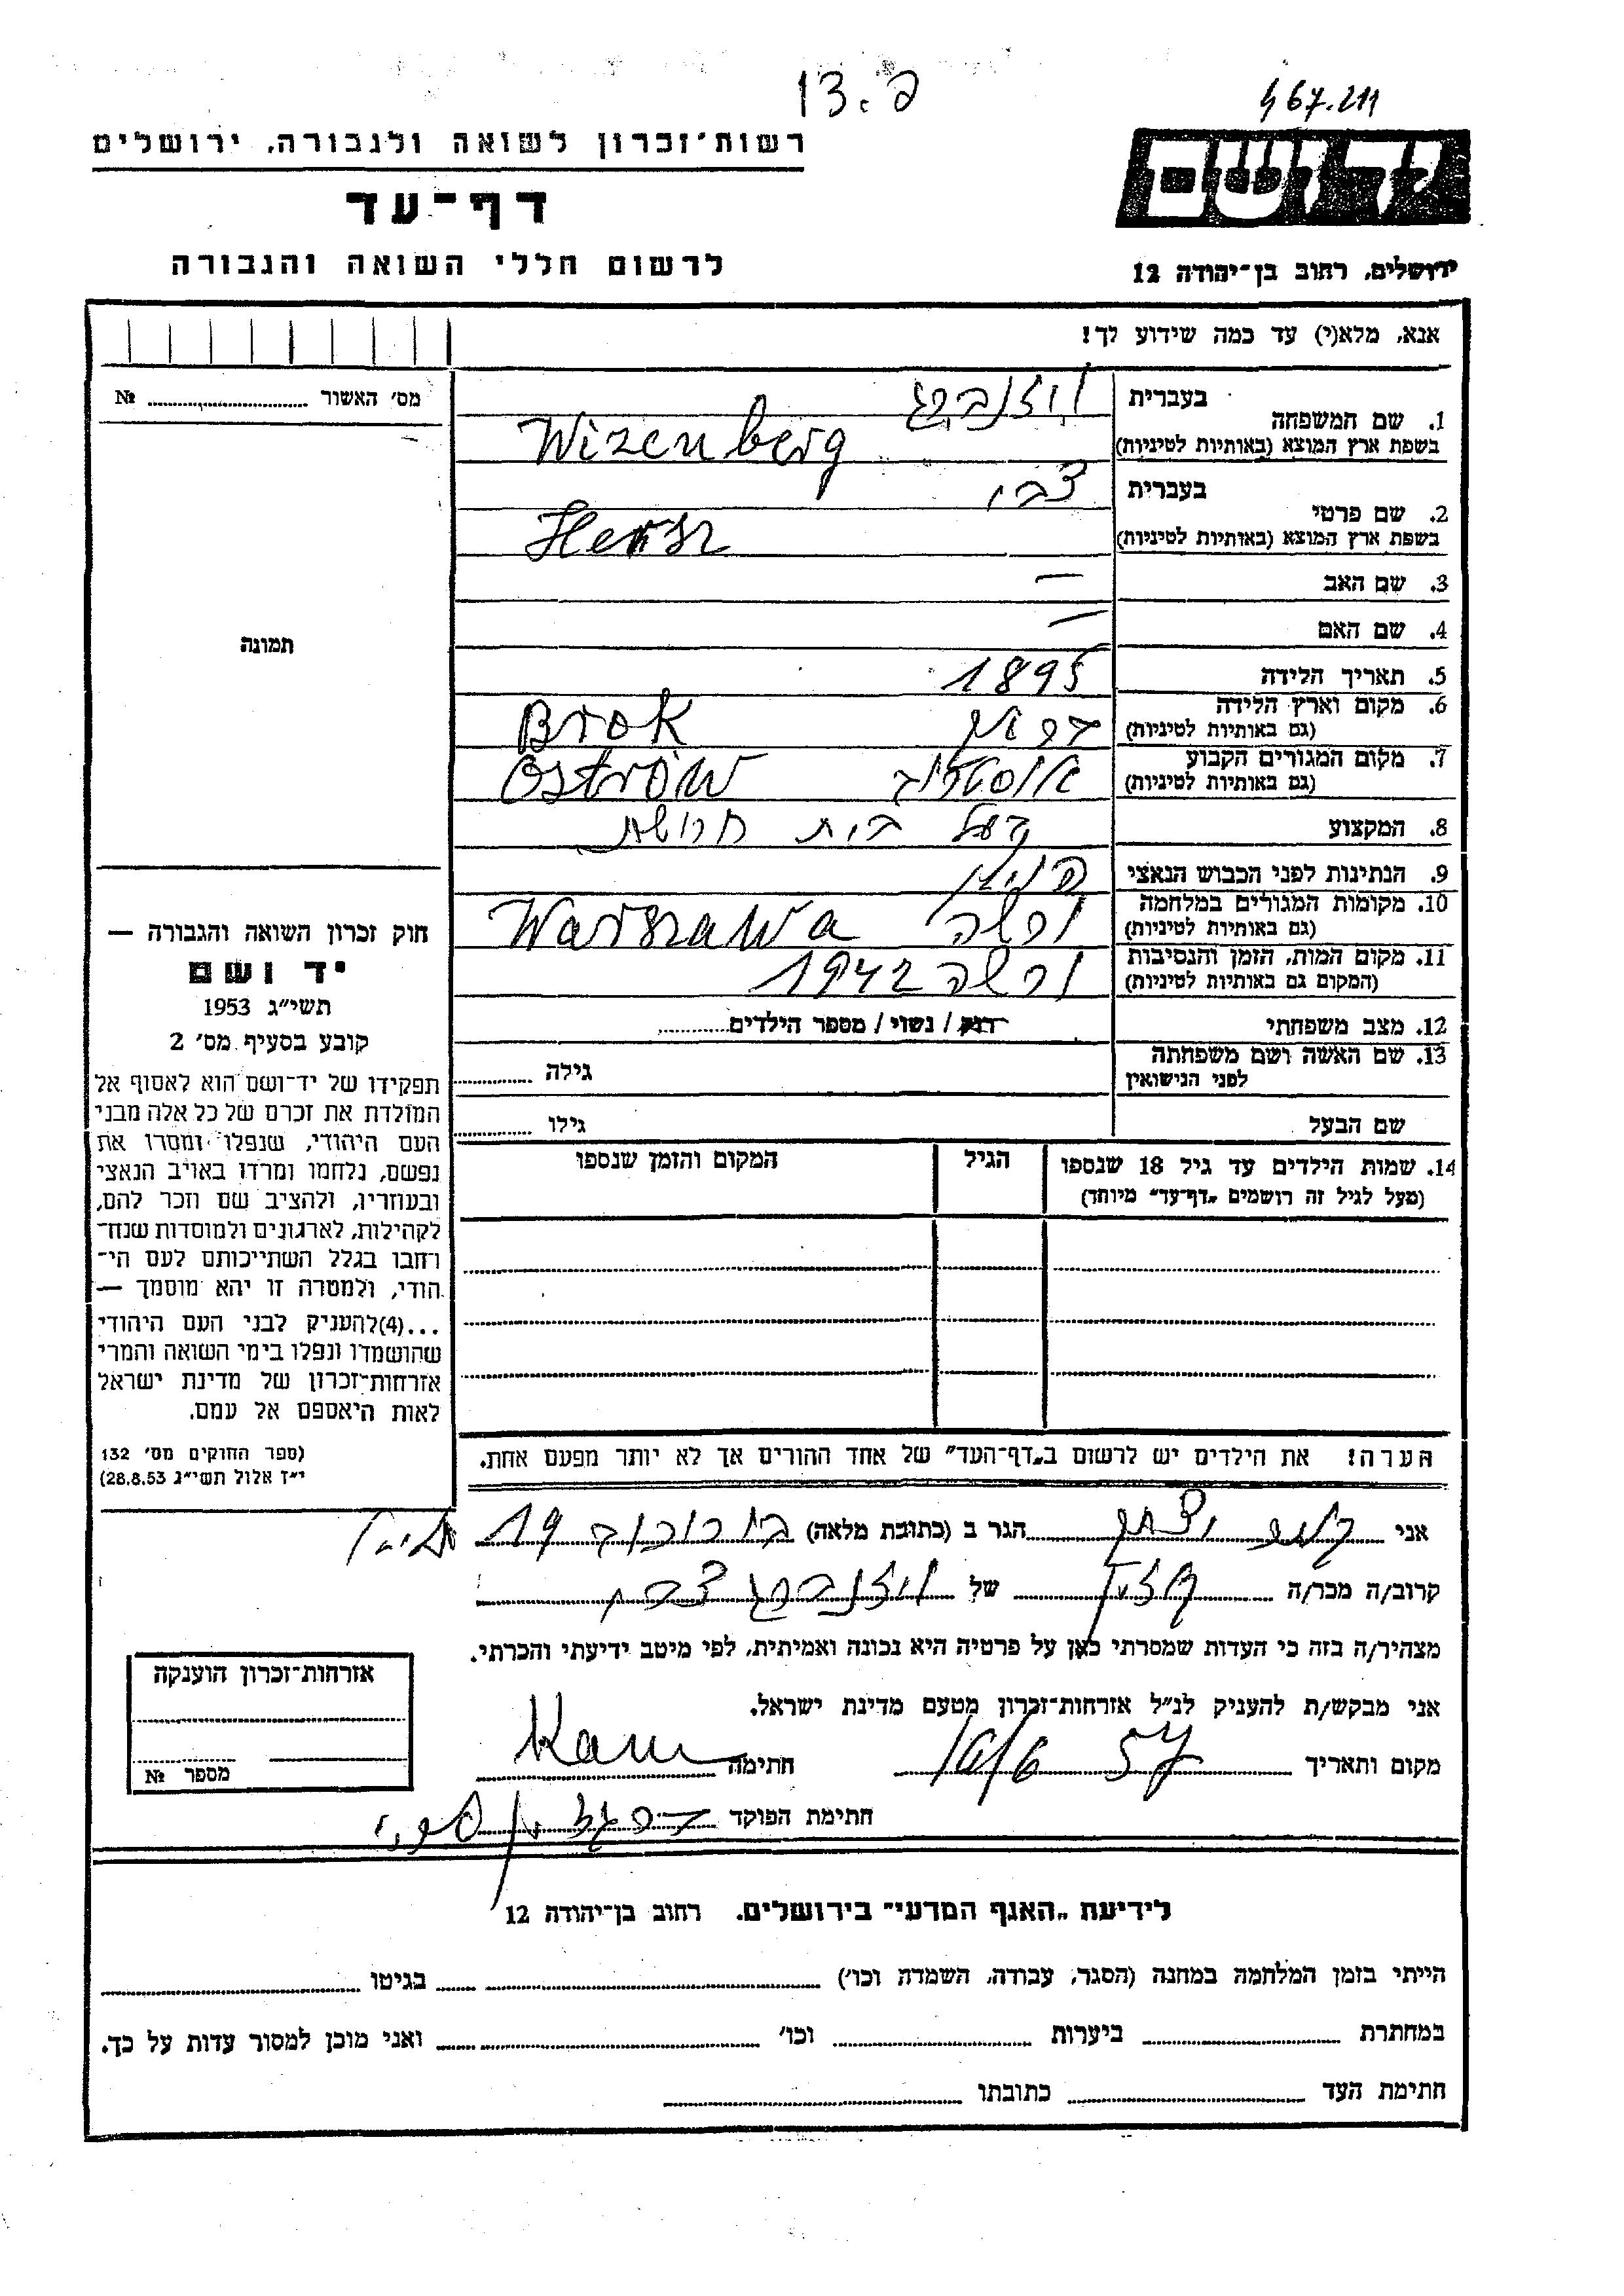 13.פ
467.211
רשות־זכרון לשואה ולגבורה, ירושלים
יד ושם
דף־עד
לרשום חללי השואה והגבורה
ירושלים, רחוב בן־יהודה 12
אנא, מלא(י) עד כמה שידוע לך!
מס' האשור № 
1. שם המשפחה בעברית ויזנברג
בשפת ארץ המוצא (באותיות לטיניות) Wizenberg
2. שם פרטי בעברית צבי
בשפת ארץ המוצא (באותיות לטיניות) Hersz
3. שם האב —
4. שם האם —
5. תאריך הלידה 1895
6. מקום וארץ הלידה (גם באותיות לטיניות) Brok
7. מקום המגורים הקבוע (גם באותיות לטיניות) אוסטרוב Ostrów
8. המקצוע בעל בית חרושת
9. הנתינות לפני הכבוש הנאצי
10. מקומות המגורים במלחמה (גם באותיות לטיניות) ורשה Warszawa
11. מקום המות, הזמן והנסיבות (המקום גם באותיות לטיניות) ורשה 1942
12. מצב משפחתי רוק / נשוי / מספר הילדים
13. שם האשה ושם משפחתה לפני הנישואין גילה
שם הבעל גילו
14. שמות הילדים עד גיל 18 שנספו הגיל המקום והזמן שנספו
(מעל לגיל זה רושמים „דף־עד" מיוחד)
הערה! את הילדים יש לרשום ב„דף־העד" של אחד ההורים אך לא יותר מפעם אחת.
תמונה
חוק זכרון השואה והגבורה —
יד ושם
תשי"ג 1953
קובע בסעיף מס' 2
תפקידו של יד־ושם הוא לאסוף אל
המולדת את זכרם של כל אלה מבני
העם היהודי, שנפלו ומסרו את
נפשם, נלחמו ומרדו באויב הנאצי
ובעוזריו, ולהציב שם וזכר להם,
לקהילות, לארגונים ולמוסדות שנח־
רחבו בגלל השתייכותם לעם הי־
הודי, ולמטרה זו יהא מוסמך —
...(4)להעניק לבני העם היהודי
שהושמדו ונפלו בימי השואה והמרי
אזרחות־זכרון של מדינת ישראל
לאות היאספם אל עמם.
(ספר החוקים מס' 132
י"ז אלול תשי"ג 28.8.53)
אני הגר ב (כתובת מלאה) 19
קרוב/ה מכר/ה של ויזנברג צבי
מצהיר/ה בזה כי העדות שמסרתי כאן על פרטיה היא נכונה ואמיתית, לפי מיטב ידיעתי והכרתי.
אני מבקש/ת להעניק לנ"ל אזרחות־זכרון מטעם מדינת ישראל.
מקום ותאריך 57 חתימה
חתימת הפוקד
אזרחות־זכרון הוענקה
מספר №
לידיעת „האגף המדעי" בירושלים. רחוב בן־יהודה 12
הייתי בזמן המלחמה במחנה (הסגר, עבודה, השמדה וכו') בגיטו
במחתרת ביערות וכו' ואני מוכן למסור עדות על כך.
חתימת העד כתובתו